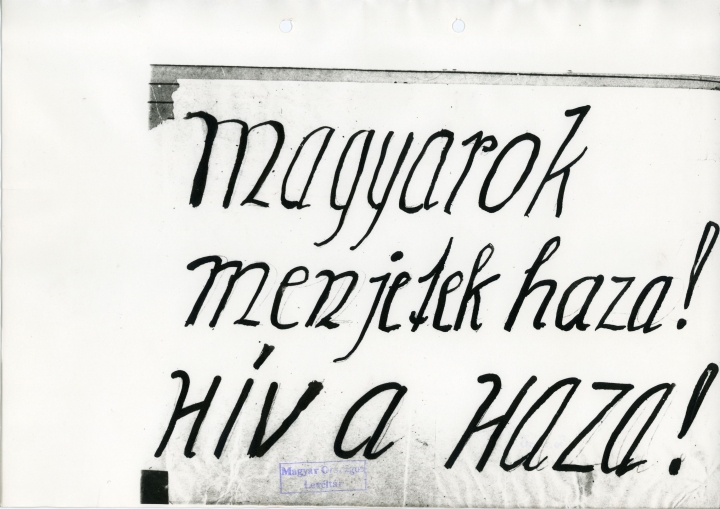 Magyarok
menjetek haza!
Hív a HAZA!
Magyar Országos
Levéltár